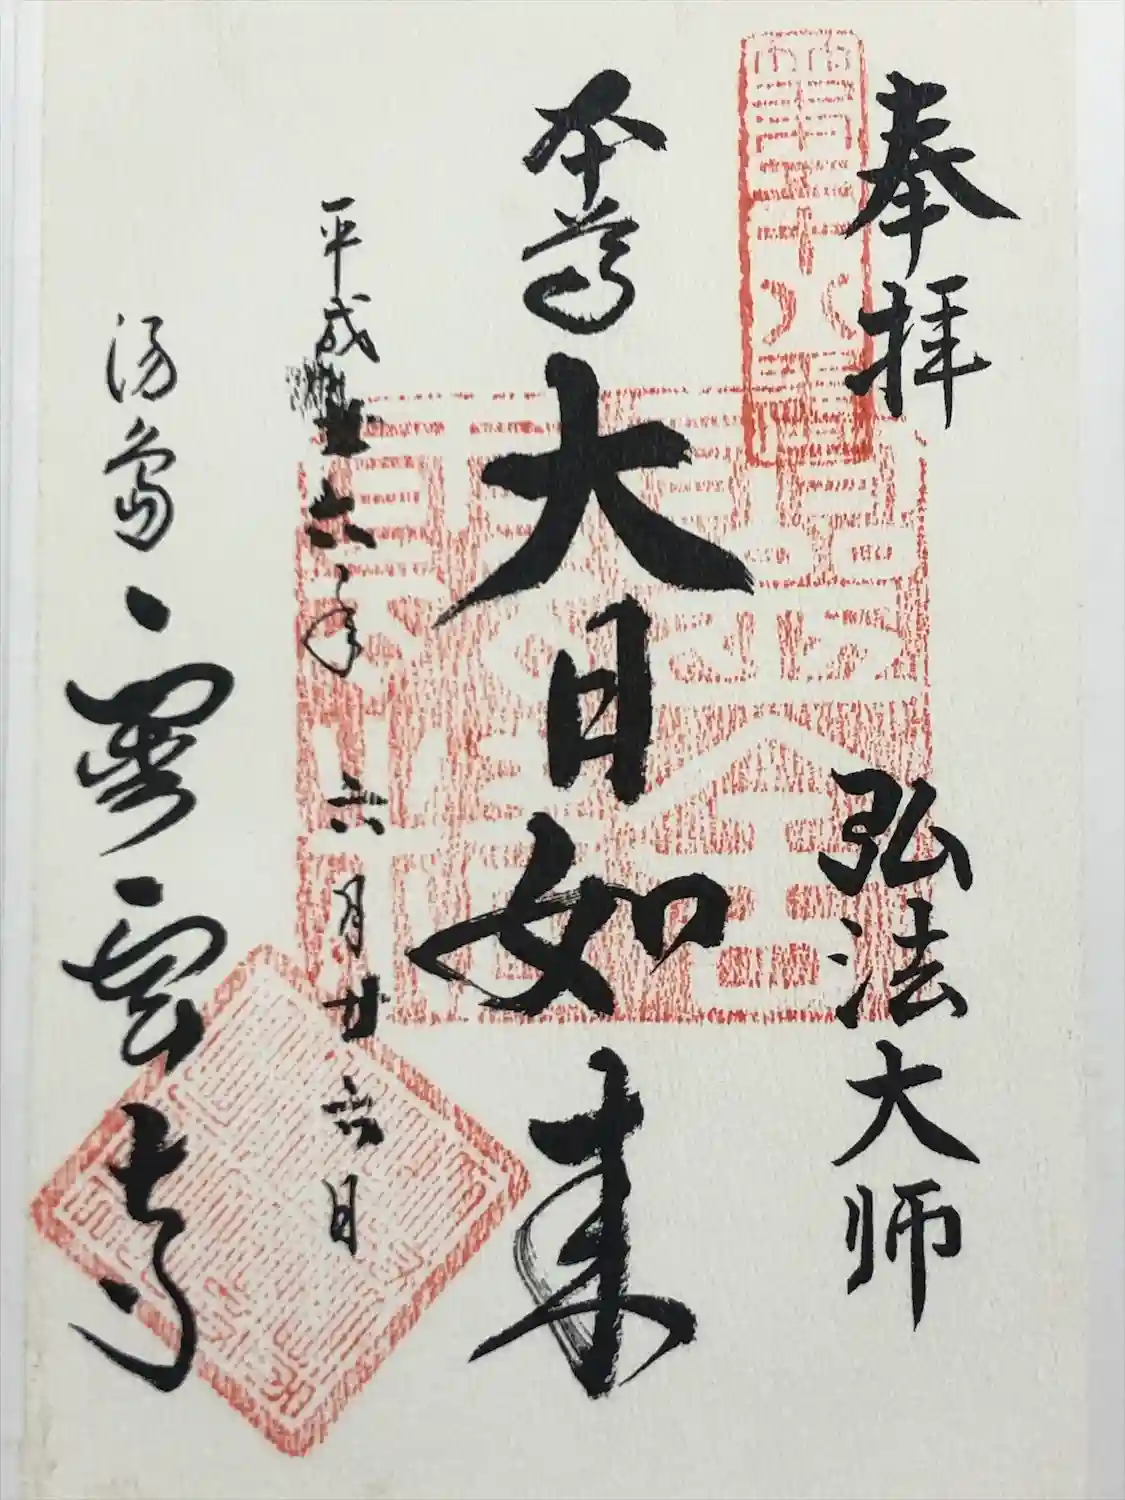 奉拝 弘法大师
本尊 大日如来
平成六年 六月廿六日
湯島 霊雲寺